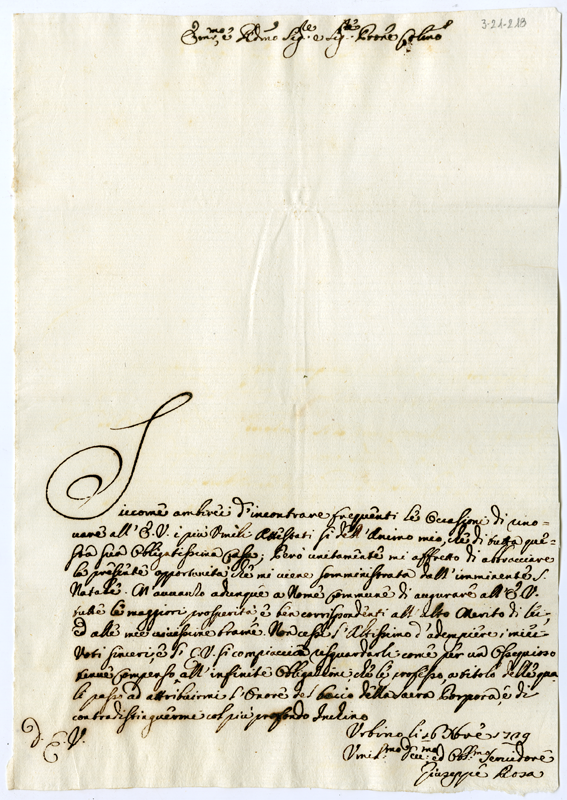 3-21-218
Em.mo e R.mo Sig.re e Sig.re P.rone Col.mo
Siccome ambirei d'incontrare frequenti le Occasioni di rino=
uare all' E. V. i più Umili Attestati si dell' Animo mio, che di tutta que=
sta sua Obligatissima Casa; Però unitamente mi affretto di abbracciare
la presente opportunità, che mi viene somministrata dall' imminente S.
Natale. M'auanzo adunque a Nome Commune di augurare all' E. V.
tutte le maggiori prosperità e ben corrispondenti all' alto Merito di lei,
ed alle mie uiuissime brame. Non cessi l' Altissimo d'adempiere i miei
Voti sinceri, e l' E. V. si compiaccia risguardarli come per un Ossequioso
tenue Compenso all' infinite Obligazioni che le professo, a titolo delle qua
li passo ad attribuirmi l' Onore del bacio della Sacra Porpora, e di
contradistinguerme col più profondo Inchino
D. E. V.
Urbino li 16 Xbre 1719
Umil.mo Deu.mo ed Obl.mo Seruidore
Giuseppe Rosa